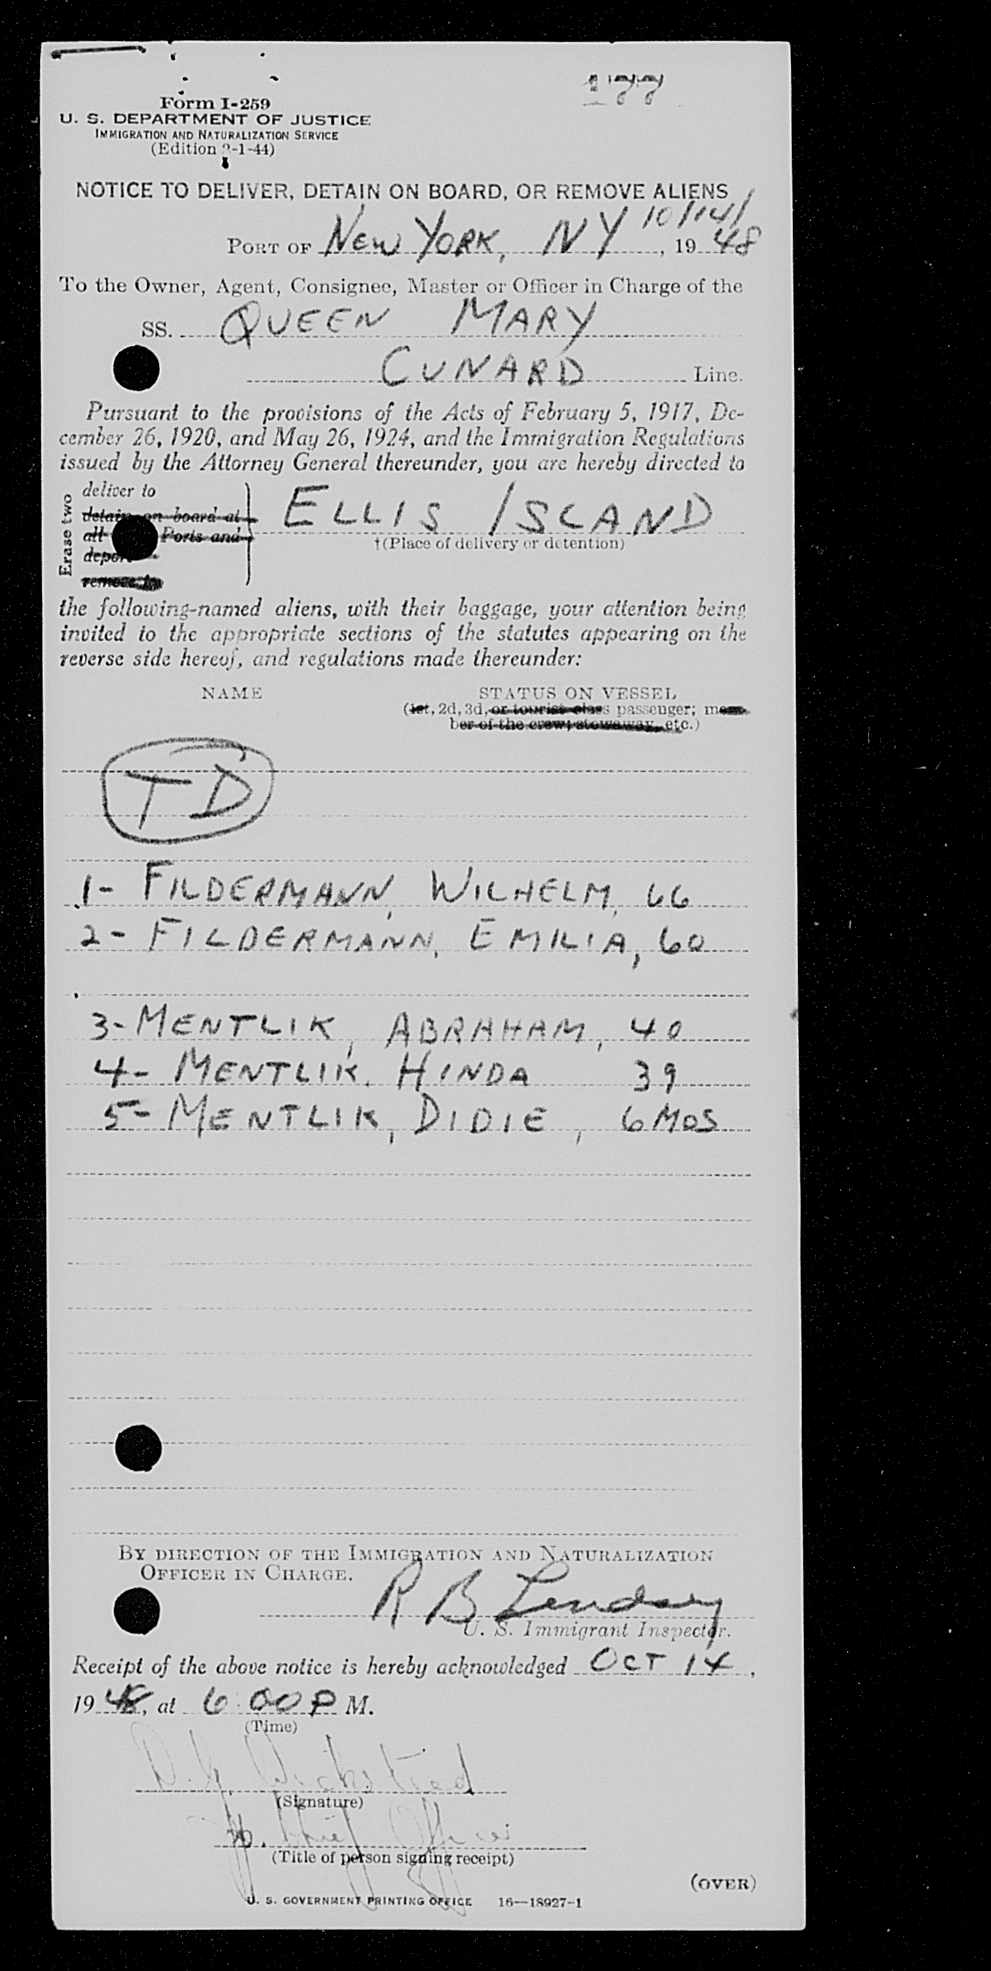 177
Form I-259
U. S. DEPARTMENT OF JUSTICE
IMMIGRATION AND NATURALIZATION SERVICE
(Edition -1-44)
NOTICE TO DELIVER, DETAIN ON BOARD, OR REMOVE ALIENS
PORT OF NEW YORK, NY 10/14/, 19 48
To the Owner, Agent, Consignee, Master or Officer in Charge of the
SS. QUEEN MARY
CUNARD Line.
Pursuant to the provisions of the Acts of February 5, 1917, De-
cember 26, 1920, and May 26, 1924, and the Immigration Regulations
issued by the Attorney General thereunder, you are hereby directed to
Erase two
deliver to
detain on board at
all Ports and
ELLIS ISLAND
†(Place of delivery or detention)
depor
remove to
the following-named aliens, with their baggage, your attention being
invited to the appropriate sections of the statutes appearing on the
reverse side hereof, and regulations made thereunder:
NAME STATUS ON VESSEL
(1st, 2d, 3d, or tourist class passenger; mem-
ber of the crew, stowaway, etc.)
TD
1- FILDERMANN, WILHELM, 66
2- FILDERMANN, EMILIA, 60
3- MENTLIK, ABRAHAM, 40
4- MENTLIK, HINDA 39
5- MENTLIK, DIDIE, 6 MOS
BY DIRECTION OF THE IMMIGRATION AND NATURALIZATION
OFFICER IN CHARGE.
R B Lendsay
U. S. Immigrant Inspector.
Receipt of the above notice is hereby acknowledged OCT 14,
19 48, at 6:00 P M.
(Time)
(Signature)
Chief Officer
(Title of person signing receipt)
(OVER)
U. S. GOVERNMENT PRINTING OFFICE 16—18927-1